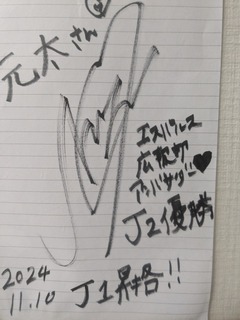 元太さん
エスパルス
広報部
アンバサダー♥
J2優勝
2024
11.10 J1昇格!!